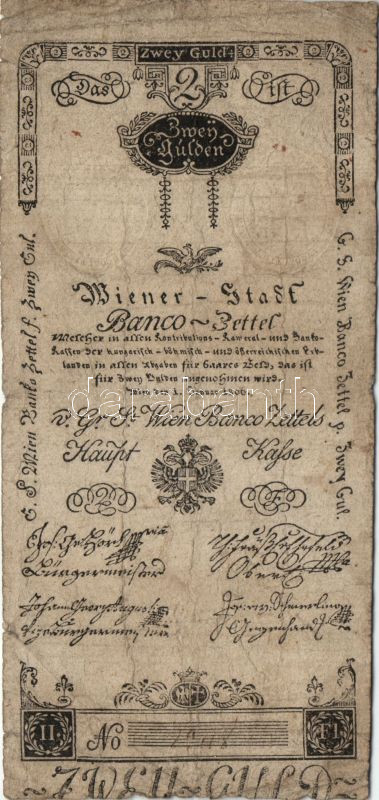 Zwey Guld:
Das 2 ist
Zwey
Gulden
Wiener - Stadt
Banco ~ Zettel
Welcher in allen Kontributions - Kameral - und Banko-
Kassen der hungarisch - böhmisch - und österreichischen Erb-
landen in allen Abgaben für baares Geld, das ist
für Zwey Gulden angenohmen wird.
Wien den 1. 1806.
v. Gr. St. Wien Banco Zettels
Haupt Kasse
2 F
Bürgermeister
Johann Georg August
G. S. Wien Banko Zettel f. Zwey Gul.
G. S. Wien Banco Zettel p. Zwey Gul.
II. No Fl.
ZWEY - GULD
darabanth